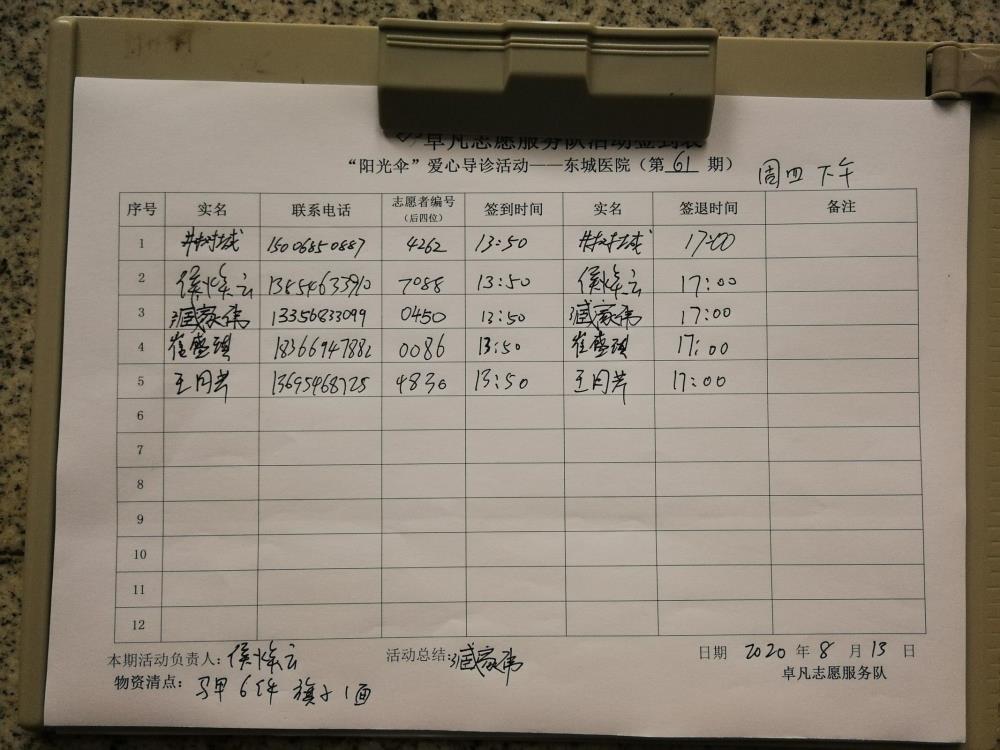 卓凡志愿服务队活动签到表
“阳光伞”爱心导诊活动——东城医院（第 61 期） 周四下午
序号 实名 联系电话 志愿者编号（后四位） 签到时间 实名 签退时间 备注
1 15006850887 4262 13:50 17:00
2 侯焕云 7088 13:50 侯焕云 17:00
3 臧家伟 13356833099 0450 13:50 臧家伟 17:00
4 崔盛琪 18366947882 0086 13:50 崔盛琪 17:00
5 王月芹 13695468725 4830 13:50 王月芹 17:00
6
7
8
9
10
11
12
本期活动负责人：侯焕云 活动总结：臧家伟 日期 2020 年 8 月 13 日
物资清点：马甲 6件 旗子 1面 卓凡志愿服务队